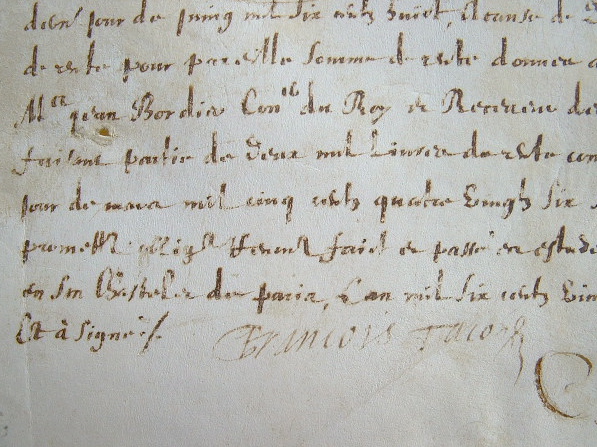 jour de juing mil six cents huict, A cause de
de rente pour pareille somme de rente donnee a
M^re Jean Bordier Con^er du Roy et Receveur de
faisant partie de deux mil Livres de rente con
jour de mars mil cinq cents quatre vingtz six
promett obligt Renonct faict et passé en
en son Hostel a Paris, L'an mil six cents vin
Et à signé
Francois Jacob